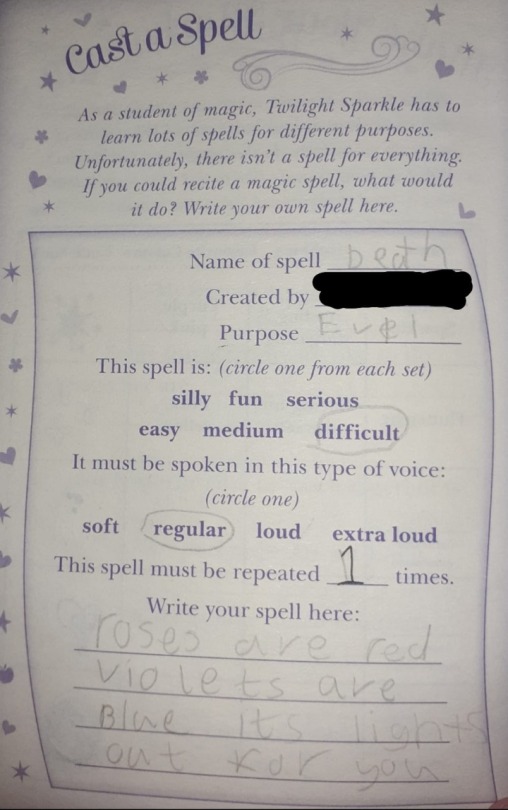 Cast a Spell
As a student of magic, Twilight Sparkle has to
learn lots of spells for different purposes.
Unfortunately, there isn't a spell for everything.
If you could recite a magic spell, what would
it do? Write your own spell here.
Name of spell Death
Created by
Purpose Evel
This spell is: (circle one from each set)
silly fun serious
easy medium difficult
It must be spoken in this type of voice:
(circle one)
soft regular loud extra loud
This spell must be repeated 1 times.
Write your spell here:
roses are red
violets are
Blue its lights
out for you